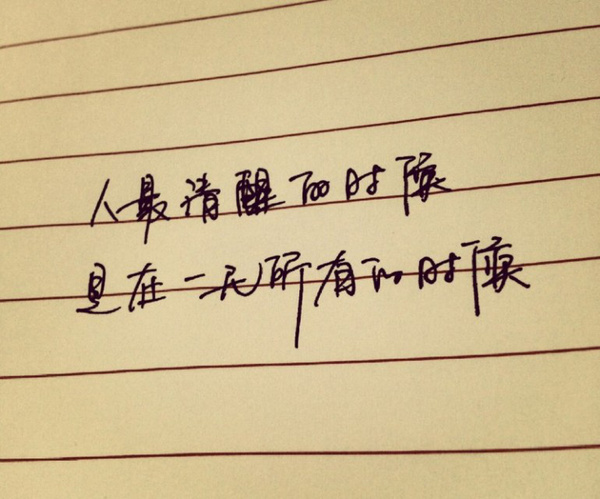 人最清醒的时候
是在一无所有的时候